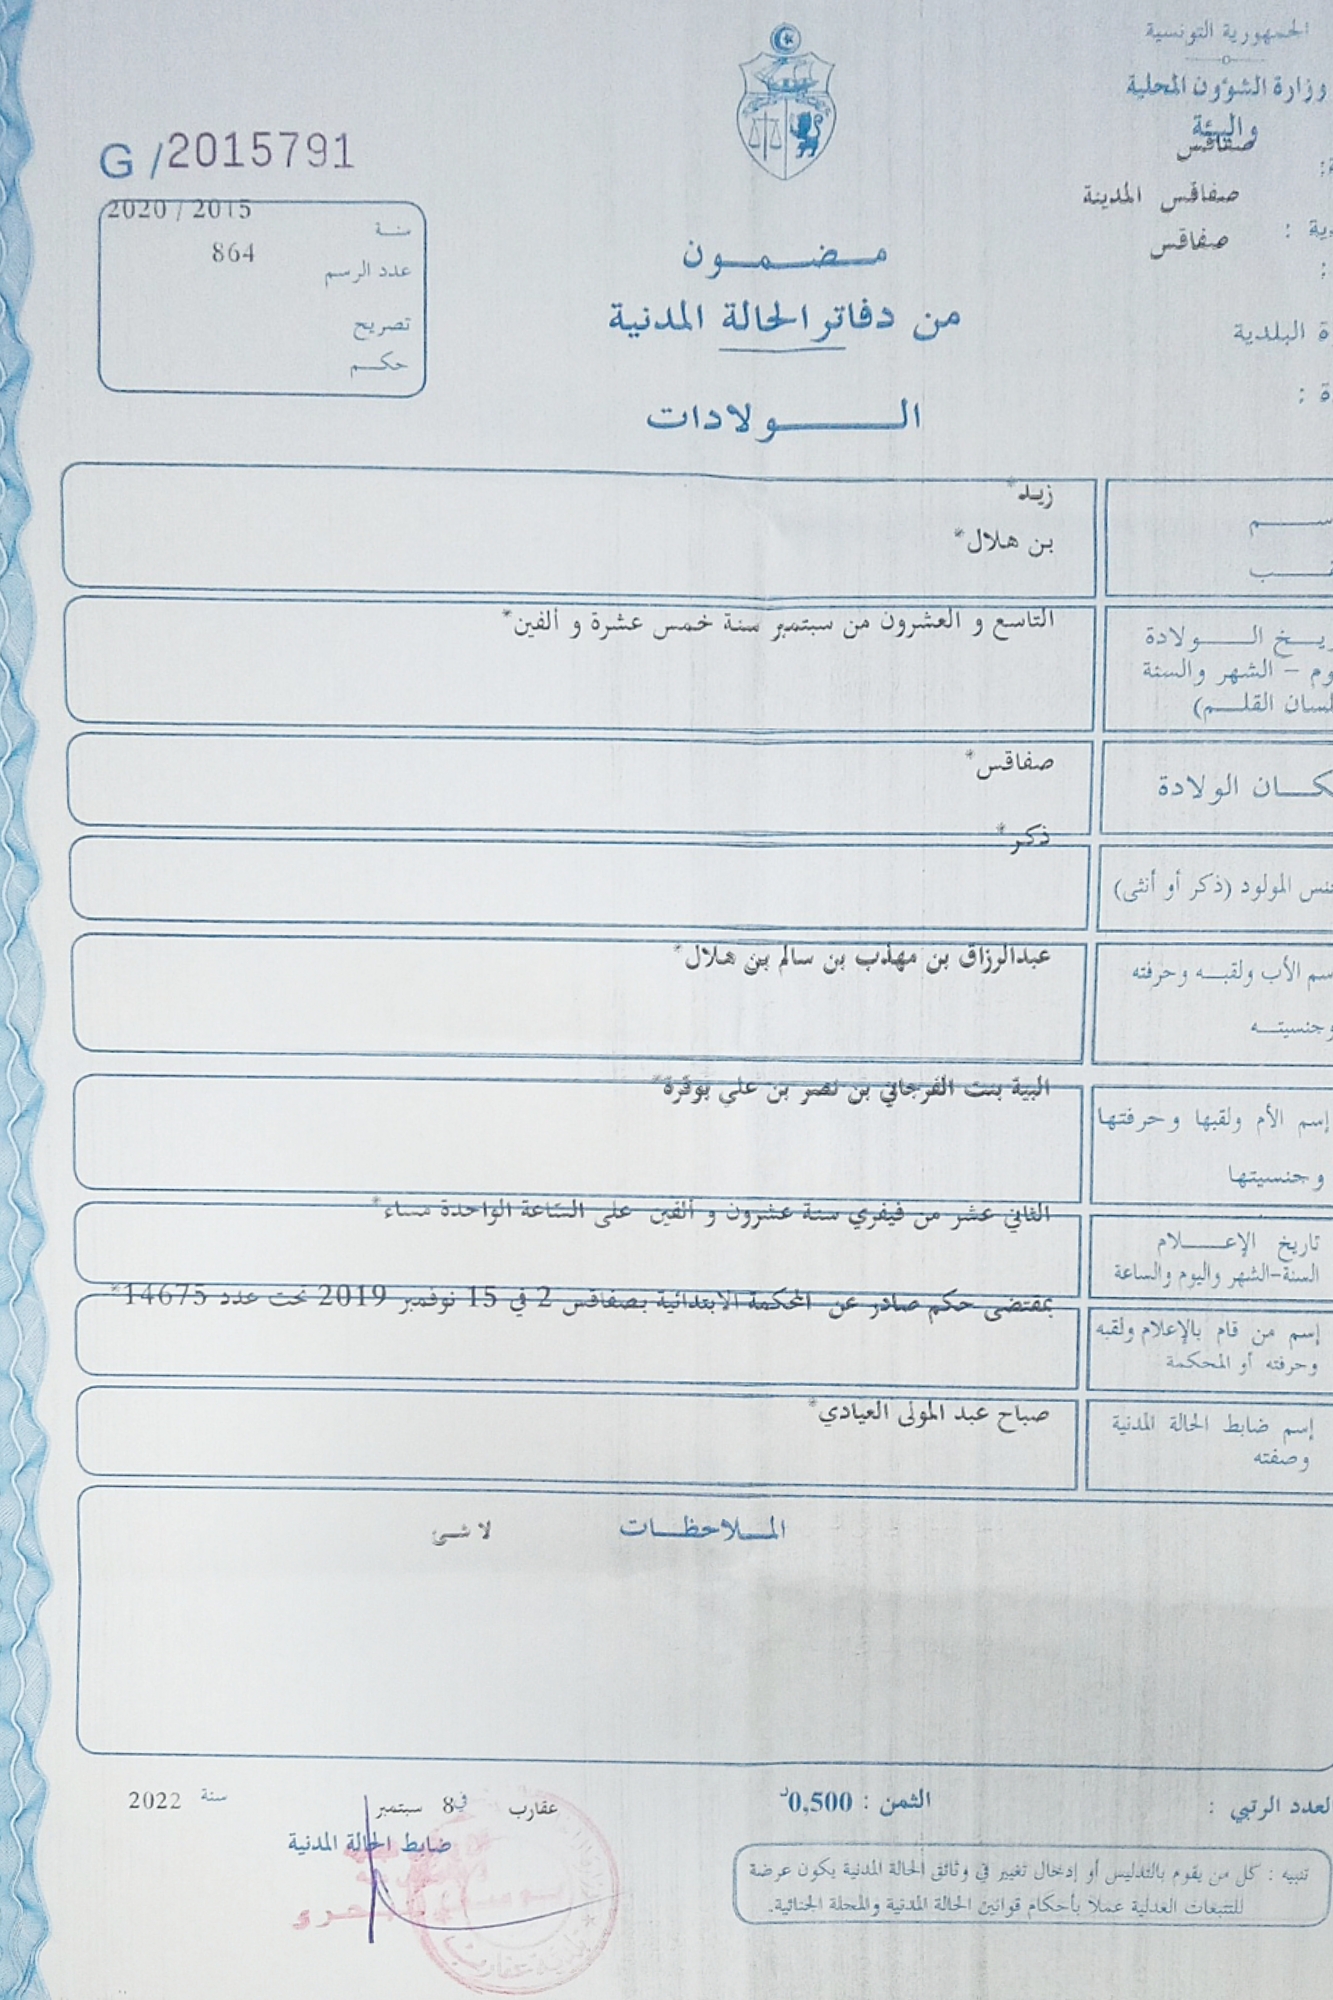 الجمهورية التونسية
وزارة الشؤون المحلية
والبيئة
صفاقس
صفاقس المدينة
صفاقس
البلدية
G /2015791
2020 / 2015
سنة
864
عدد الرسم
تصريح
حكم
مضمون
من دفاتر الحالة المدنية
الولادات
زيد*
بن هلال*
التاسع و العشرون من سبتمبر سنة خمس عشرة و ألفين*
الولادة
الشهر والسنة
القلم)
صفاقس*
الولادة
ذكر*
المولود (ذكر أو أنثى)
عبدالرزاق بن مهذب بن سالم بن هلال*
الأب ولقبه وحرفته
وجنسيته
البية بنت الفرجاني بن نصر بن علي بوقرة*
إسم الأم ولقبها وحرفتها
وجنسيتها
الثاني عشر من فيفري سنة عشرون و ألفين على الساعة الواحدة مساء*
تاريخ الإعلام
السنة-الشهر واليوم والساعة
بمقتضى حكم صادر عن المحكمة الابتدائية بصفاقس 2 في 15 نوفمبر 2019 تحت عدد 14675*
إسم من قام بالإعلام ولقبه
وحرفته أو المحكمة
صباح عبد المولى العيادي*
إسم ضابط الحالة المدنية
وصفته
الملاحظات لا شئ
العدد الرتبي :
الثمن : 0,500د
عقارب في 8 سبتمبر سنة 2022
ضابط الحالة المدنية
تنبيه : كل من يقوم بالتدليس أو إدخال تغيير في وثائق الحالة المدنية يكون عرضة
للتتبعات العدلية عملا بأحكام قوانين الحالة المدنية والمجلة الجنائية.